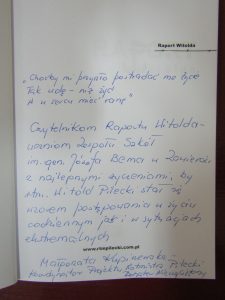 Raport Witolda
„Choćby mi przyszło postradać me życie
Tak wolę – niż żyć
A w sercu mieć ranę”
Czytelnikom Raportu Witolda –
uczniom Zespołu Szkół
im. gen. Józefa Bema w
z najlepszymi życzeniami, by
rtm. Witold Pilecki stał się
wzorem postępowania w życiu
codziennym jak i w sytuacjach
ekstremalnych
www.rtmpilecki.com.pl
Małgorzata
Koordynator Projektu Rotmistrz Pilecki